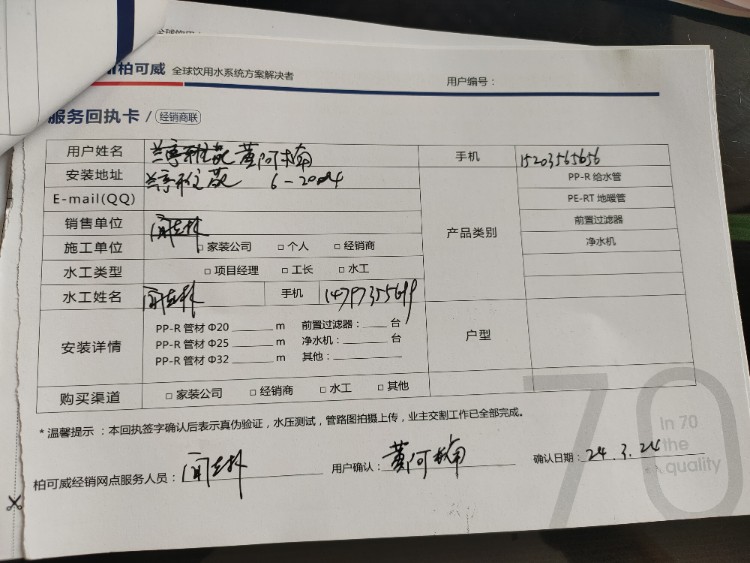 柏可威 全球饮用水系统方案解决者
用户编号：
服务回执卡 / 经销商联
用户姓名 黄阿楠 手机 15203565656
安装地址 兰亭雅苑 6-2004 PP-R 给水管
E-mail(QQ) PE-RT 地暖管
销售单位 产品类别 前置过滤器
施工单位 □ 家装公司 □ 个人 □ 经销商 净水机
水工类型 □ 项目经理 □ 工长 □ 水工
水工姓名 手机 14797355699
安装详情 PP-R 管材 Φ20 ______ m 前置过滤器：____ 台 户型
PP-R 管材 Φ25 ______ m 净水机：____ 台
PP-R 管材 Φ32 ______ m 其他：______
购买渠道 □ 家装公司 □ 经销商 □ 水工 □ 其他
* 温馨提示：本回执签字确认后表示真伪验证，水压测试，管路图拍摄上传，业主交割工作已全部完成。
70
In 70
the
quality
柏可威经销网点服务人员： 用户确认：黄阿楠 确认日期：24.3.24